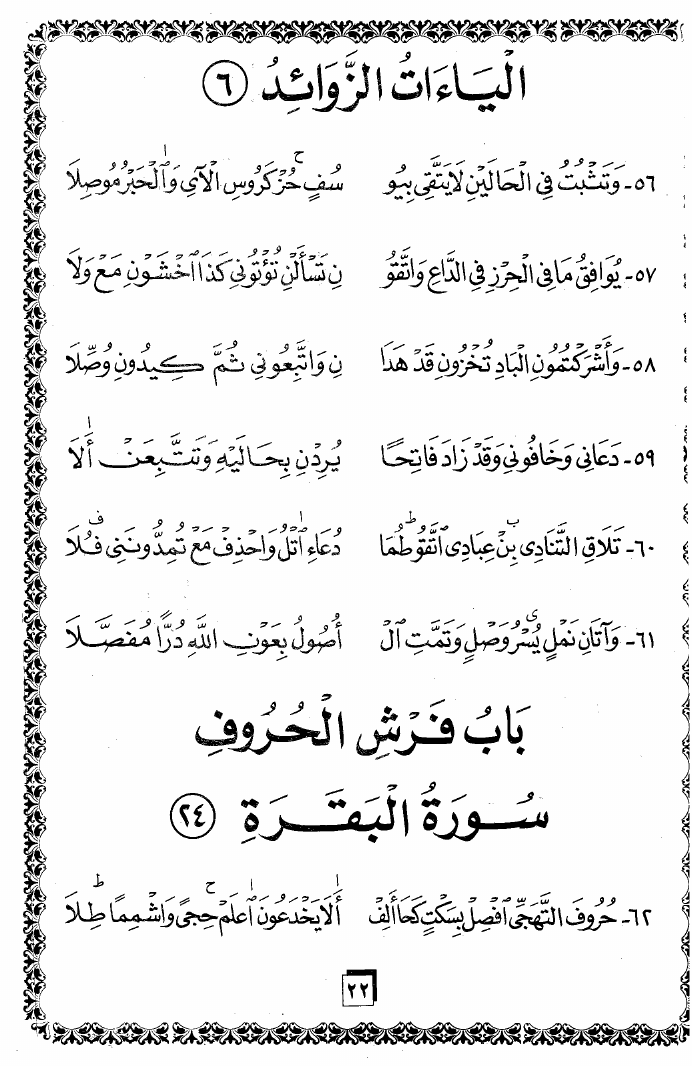 الْيَاءَاتُ الزَّوَائِدُ ٦
٥٦- وَتَثْبُتُ فِي الْحَالَيْنِ لَا يَتَّقِي بِيُو سُفٍ حُزْ كَرُوسِ الْآيِ وَالْحَبْرُ مُوصِلَا
٥٧- يُوَافِقُ مَا فِي الْحِرْزِ فِي الدَّاعِ وَاتَّقُو نِ تَسْأَلْنِ تُؤْتُونِي كَذَا اخْشَوْنِ مَعْ وَلَا
٥٨- وَأَشْرَكْتُمُونِ الْبَادِ تُخْزُونِ قَدْ هَدَا نِ وَاتَّبِعُونِي ثُمَّ كِيدُونِ وُصِّلَا
٥٩- دَعَانِي وَخَافُونِي وَقَدْ زَادَ فَاتِحًا يُرِدْنِ بِحَالَيْهِ وَتَتَّبِعَنْ أَلَا
٦٠- تَلَاقِ التَّنَادِي بِنْ عِبَادِي اتَّقُو طُمَا دُعَاءِ اتْلُ وَاحْذِفْ مَعْ تُمِدُّونَنِي فُلَا
٦١- وَآتَانِ نَمْلٍ يُسْرُ وَصْلٍ وَتَمَّتِ الْ أُصُولُ بِعَوْنِ اللَّهِ دُرًّا مُفَصَّلَا
بَابُ فَرْشِ الْحُرُوفِ
سُورَةُ الْبَقَرَةِ ٢٤
٦٢- حُرُوفَ التَّهَجِّي افْصِلْ بِسَكْتٍ كَحَا أَلِفْ أَلَا يَخْدَعُونَ اعْلَمْ حِجًى وَاشْمِمًا طِلَا
٢٢